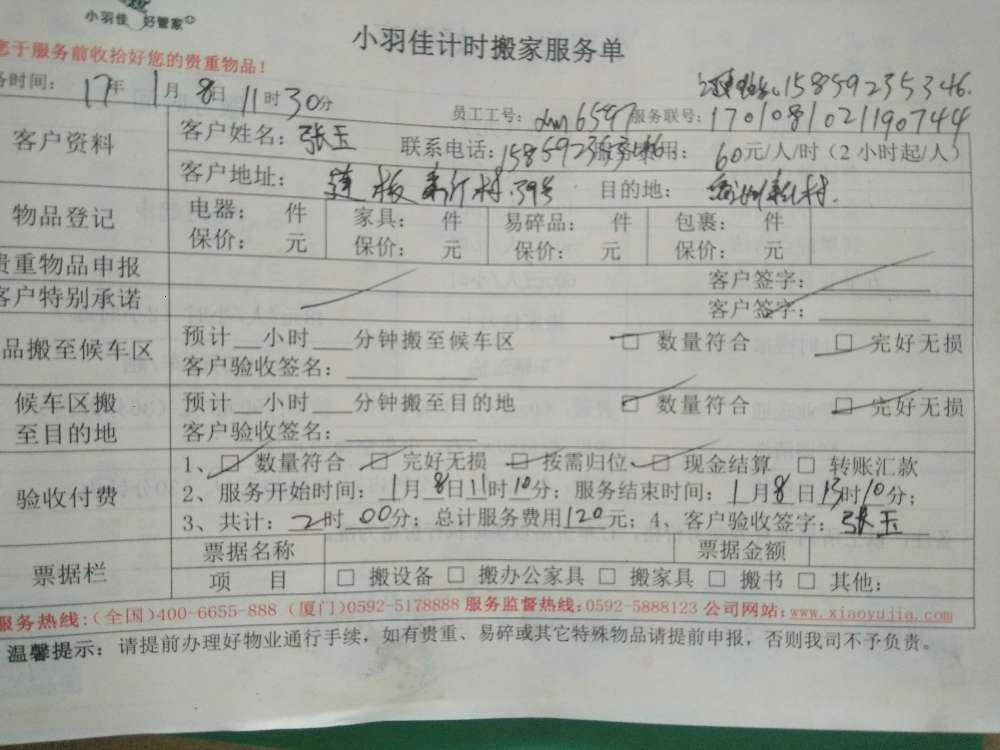 小羽佳 好管家
小羽佳计时搬家服务单
于服务前收拾好您的贵重物品！
务时间： 17年 1月 8日 11时30分
15859235346.
员工工号： 服务联号：1701081021190744
客户资料
客户姓名：张玉 联系电话：15859235346 用： 60元/人/时（2小时起/人）
客户地址： 莲板 村39号 目的地： 村.
物品登记
电器： 件 家具： 件 易碎品： 件 包裹： 件
保价： 元 保价： 元 保价： 元 保价： 元
贵重物品申报 客户签字：
客户特别承诺 客户签字：
品搬至候车区
预计__小时___分钟搬至候车区 □ 数量符合 □ 完好无损
客户验收签名：
候车区搬至目的地
预计__小时___分钟搬至目的地 □ 数量符合 □ 完好无损
客户验收签名：
验收付费
1、□ 数量符合 □ 完好无损 □ 按需归位 □ 现金结算 □ 转账汇款
2、服务开始时间：1月8日11时10分；服务结束时间：1月8日13时10分；
3、共计：2时00分；总计服务费用120元；4、客户验收签字：张玉
票据栏
票据名称 票据金额
项 目 □ 搬设备 □ 搬办公家具 □ 搬家具 □ 搬书 □ 其他：
服务热线：（全国）400-6655-888（厦门）0592-5178888 服务监督热线：0592-5888123 公司网站：www.xiaoyujia.com
温馨提示：请提前办理好物业通行手续，如有贵重、易碎或其它特殊物品请提前申报，否则我司不予负责。